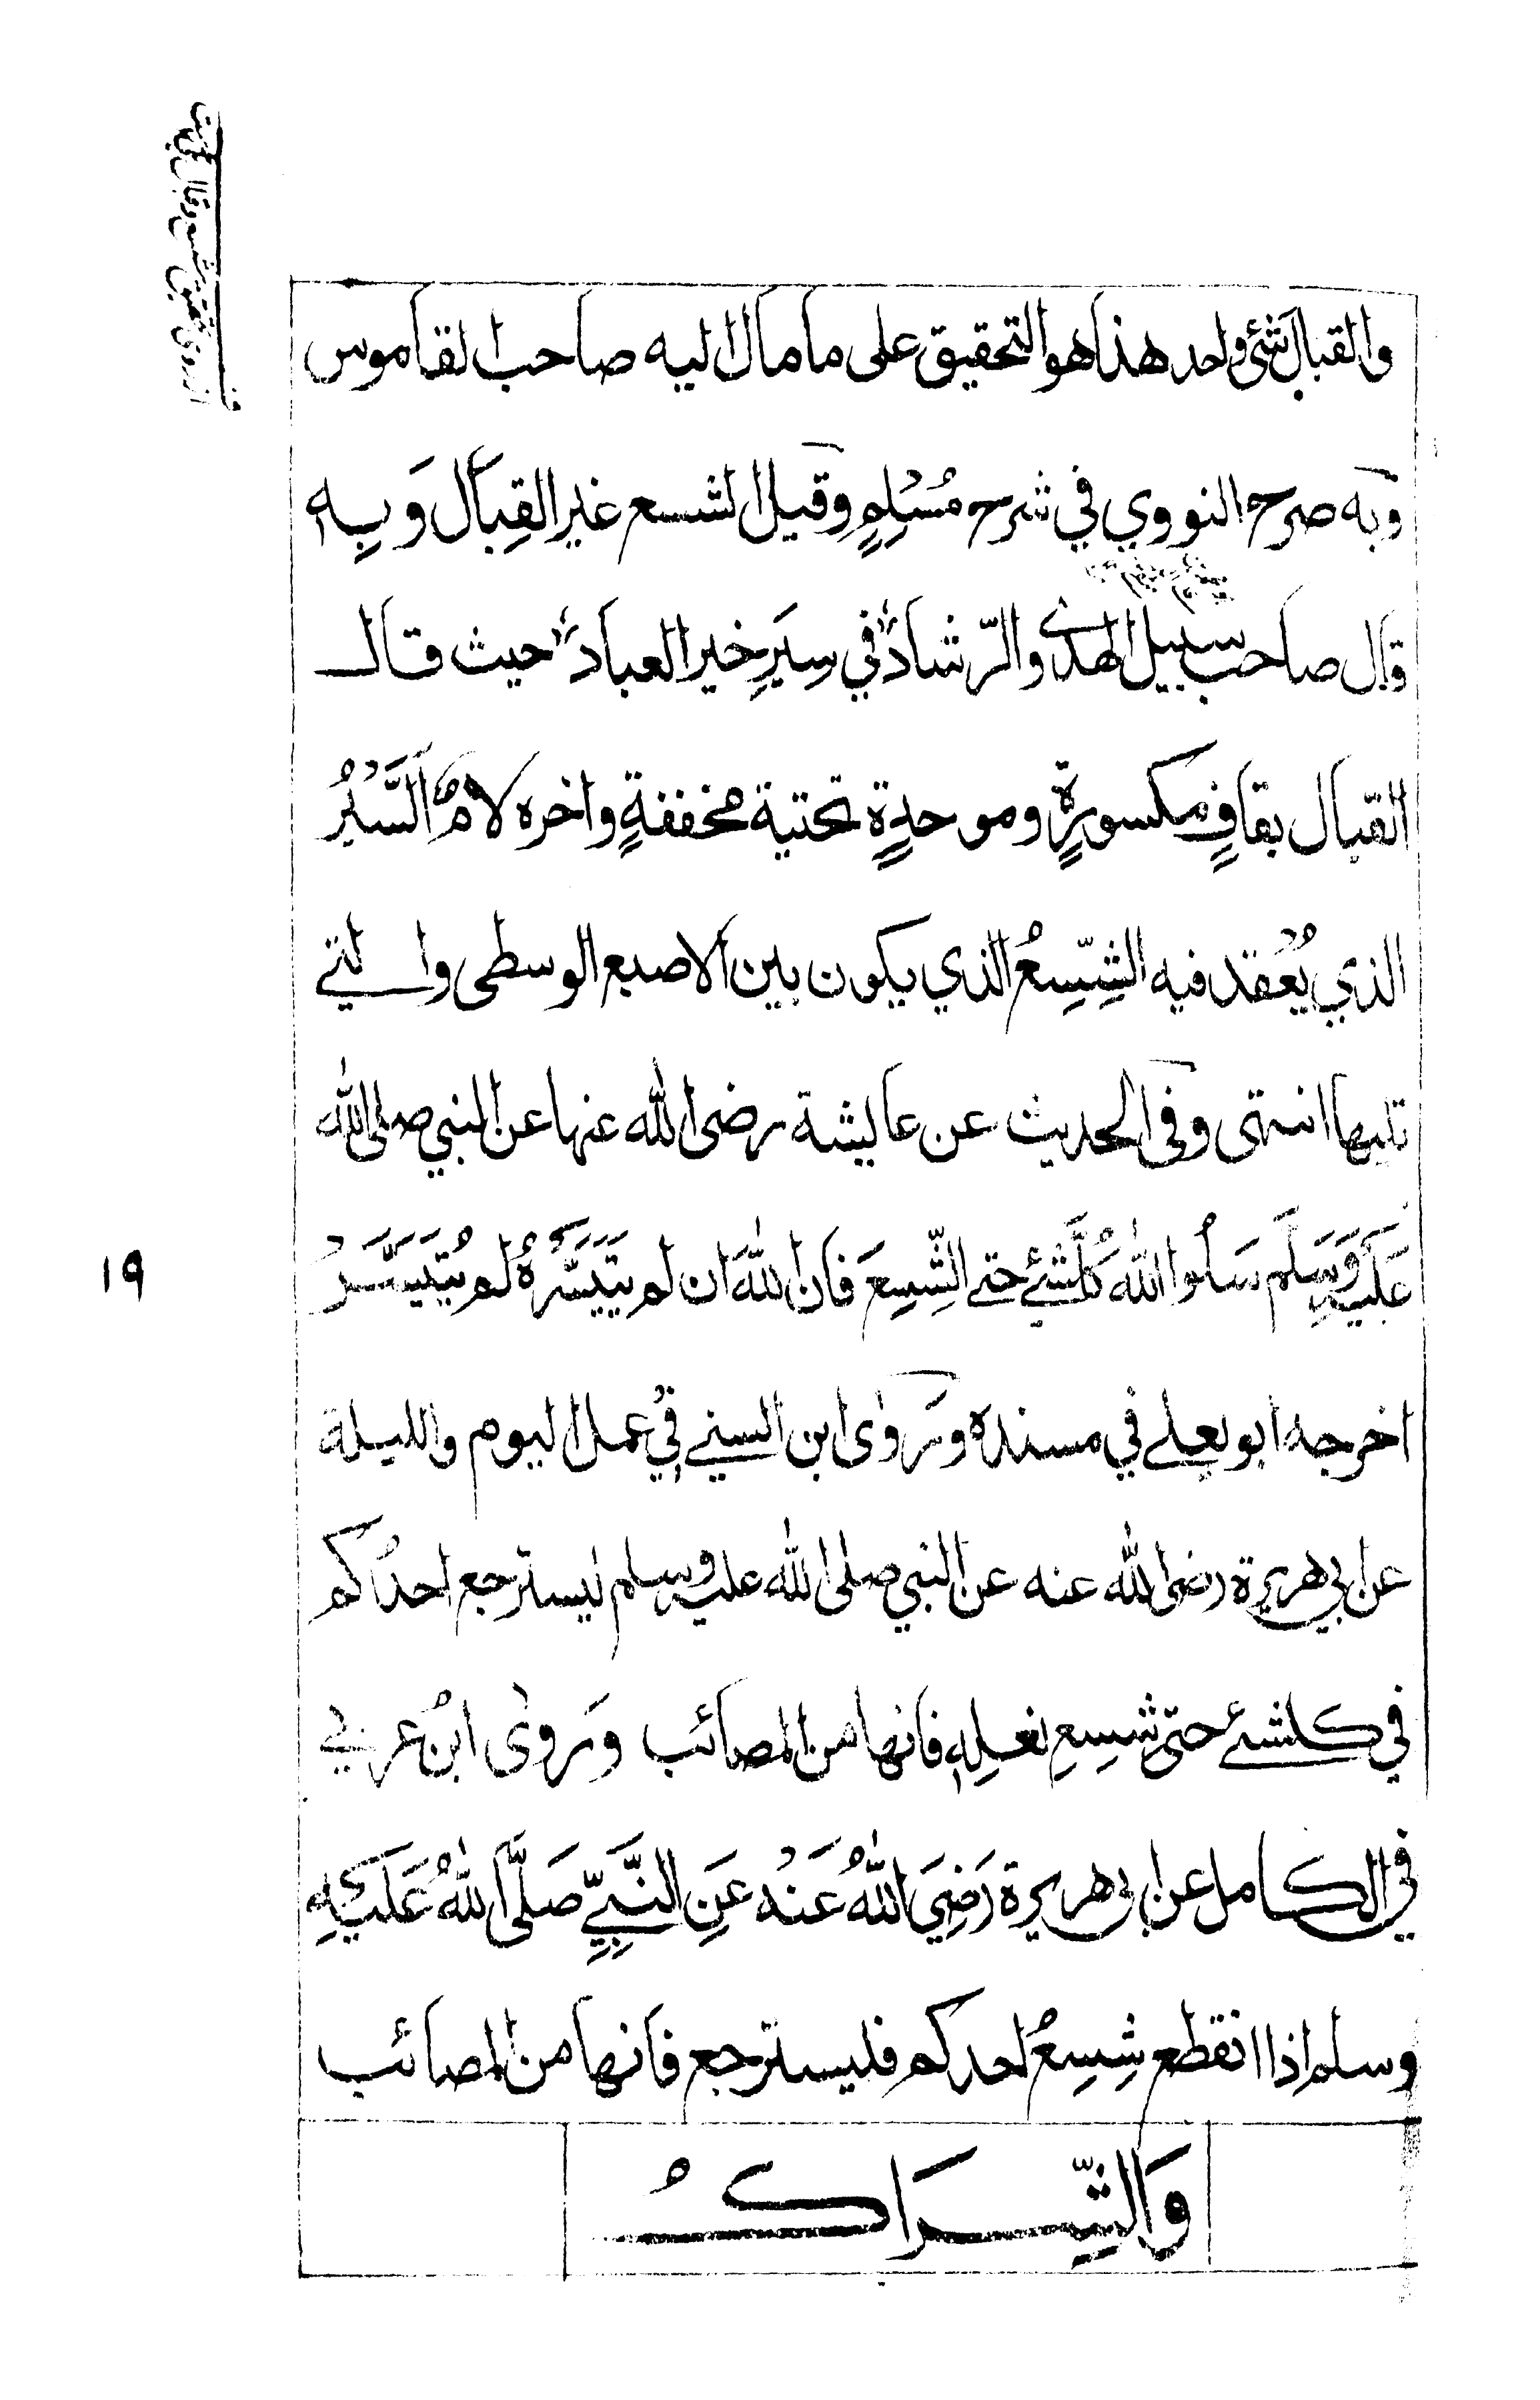 والقبال شئ واحد هذا هو التحقيق على ما مال اليه صاحب القاموس
وبه صرح النووي في شرح مُسْلِمٍ وقيل الشسع غير القِبَال وَبِه
قال صاحب سبيل الهدى والرّشاد في سِيَرِ خير العباد حيث قال
القبال بقافٍ مكسورةٍ وموحدةٍ تحتية مخففةٍ واخره لامٌ السَّيْرُ
الذي يُعْقد فيه الشِّسِعُ الذي يكون بين الاصبع الوسطى والتي
تليها انتهى وفي الحديث عن عايشة رضى الله عنها عن النبي صلى الله
عَلَيه وَسَلَّم سَلُوا اللهَ كُلَّ شئ حتى الشِّسِعَ فان اللهَ ان لم يَتَيَسَّرْهُ لم يُتَيَسَّرْ
اخرجه ابو يعلى في مسنده وروى ابن السني في عمل اليوم والليلة
عن ابي هريرة رضى الله عنه عن النبي صلى الله عليه وسلم ليسترجع احدُكم
في كل شئ حتى شِسِعِ نعلِه فانها من المصائب وروى ابنُ عربي
في الكامل عن ابي هريرة رَضِيَ اللهُ عَنْهُ عَنِ النَّبِيِّ صَلَّى اللهُ عَلَيْهِ
وسلم اذا انقطع شِسِعُ احدكم فليسترجع فانها من المصائب
وَالشِّرَاكُ
١٩